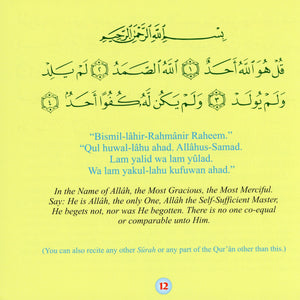 بِسْمِ اللَّهِ الرَّحْمَٰنِ الرَّحِيمِ
قُلْ هُوَ ٱللَّهُ أَحَدٌ ١ ٱللَّهُ ٱلصَّمَدُ ٢ لَمْ يَلِدْ
وَلَمْ يُولَدْ ٣ وَلَمْ يَكُن لَّهُۥ كُفُوًا أَحَدٌۢ ٤
“Bismil-lâhir-Rahmânir Raheem.”
“Qul huwal-lâhu ahad. Allâhus-Samad.
Lam yalid wa lam yûlad.
Wa lam yakul-lahu kufuwan ahad.”
In the Name of Allâh, the Most Gracious, the Most Merciful.
Say: He is Allâh, the only One, Allâh the Self-Sufficient Master,
He begets not, nor was He begotten. There is no one co-equal
or comparable unto Him.
(You can also recite any other Sûrah or any part of the Qur’ân other than this.)
12